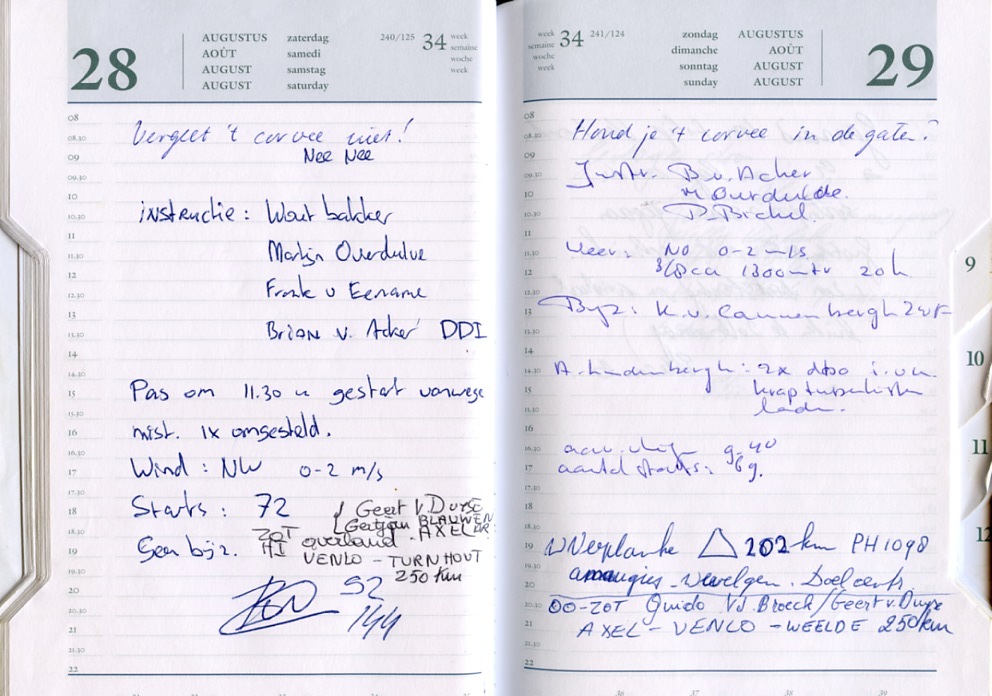 28
AUGUSTUS zaterdag
AOÛT samedi
AUGUST samstag
AUGUST saturday
240/125 34 week semaine woche week
08
08.30
09
09.30
10
10.30
11
11.30
12
12.30
13
13.30
14
14.30
15
15.30
16
16.30
17
17.30
18
18.30
19
19.30
20
20.30
21
21.30
22
Vergeet 't corvee niet!
Nee Nee
instructie: Wout bakker
Martijn Overdulve
Frank v Eename
Brian v. Acker DDI
Pas om 11.30 u gestart vanwege
mist. 1x omgesteld.
Wind: NW 0-2 m/s
Starts: 72
Geert V. Duyse
Gertjan BLAUWEN
ZOT overland. AXEL
Geen bijz.
VENLO - TURNHOUT
250 km
92
144
week semaine woche week 34 241/124
zondag AUGUSTUS
dimanche AOÛT
sonntag AUGUST
sunday AUGUST
29
08
08.30
09
09.30
10
10.30
11
11.30
12
12.30
13
13.30
14
14.30
15
15.30
16
16.30
17
17.30
18
18.30
19
19.30
20
20.30
21
21.30
22
Houd je 't corvee in de gaten?
Instr. B v. Acker
M Overdulve.
P. Bichel.
Weer: NO 0-2 m/s
ca 1300 mtr 20h
Byz: K. v. Cannenbergh
A. Lindenbergh: 2x dtso i.v.m.
krap
9-40
aantal starts: 69.
Verplanke △ 202 km PH1098
Wevelgem. Doel
OO-ZOT Guido Vd. Broeck/Geert v. Duyse
AXEL - VENLO - WEELDE 250km
9
10
11
12
36 37 38 39